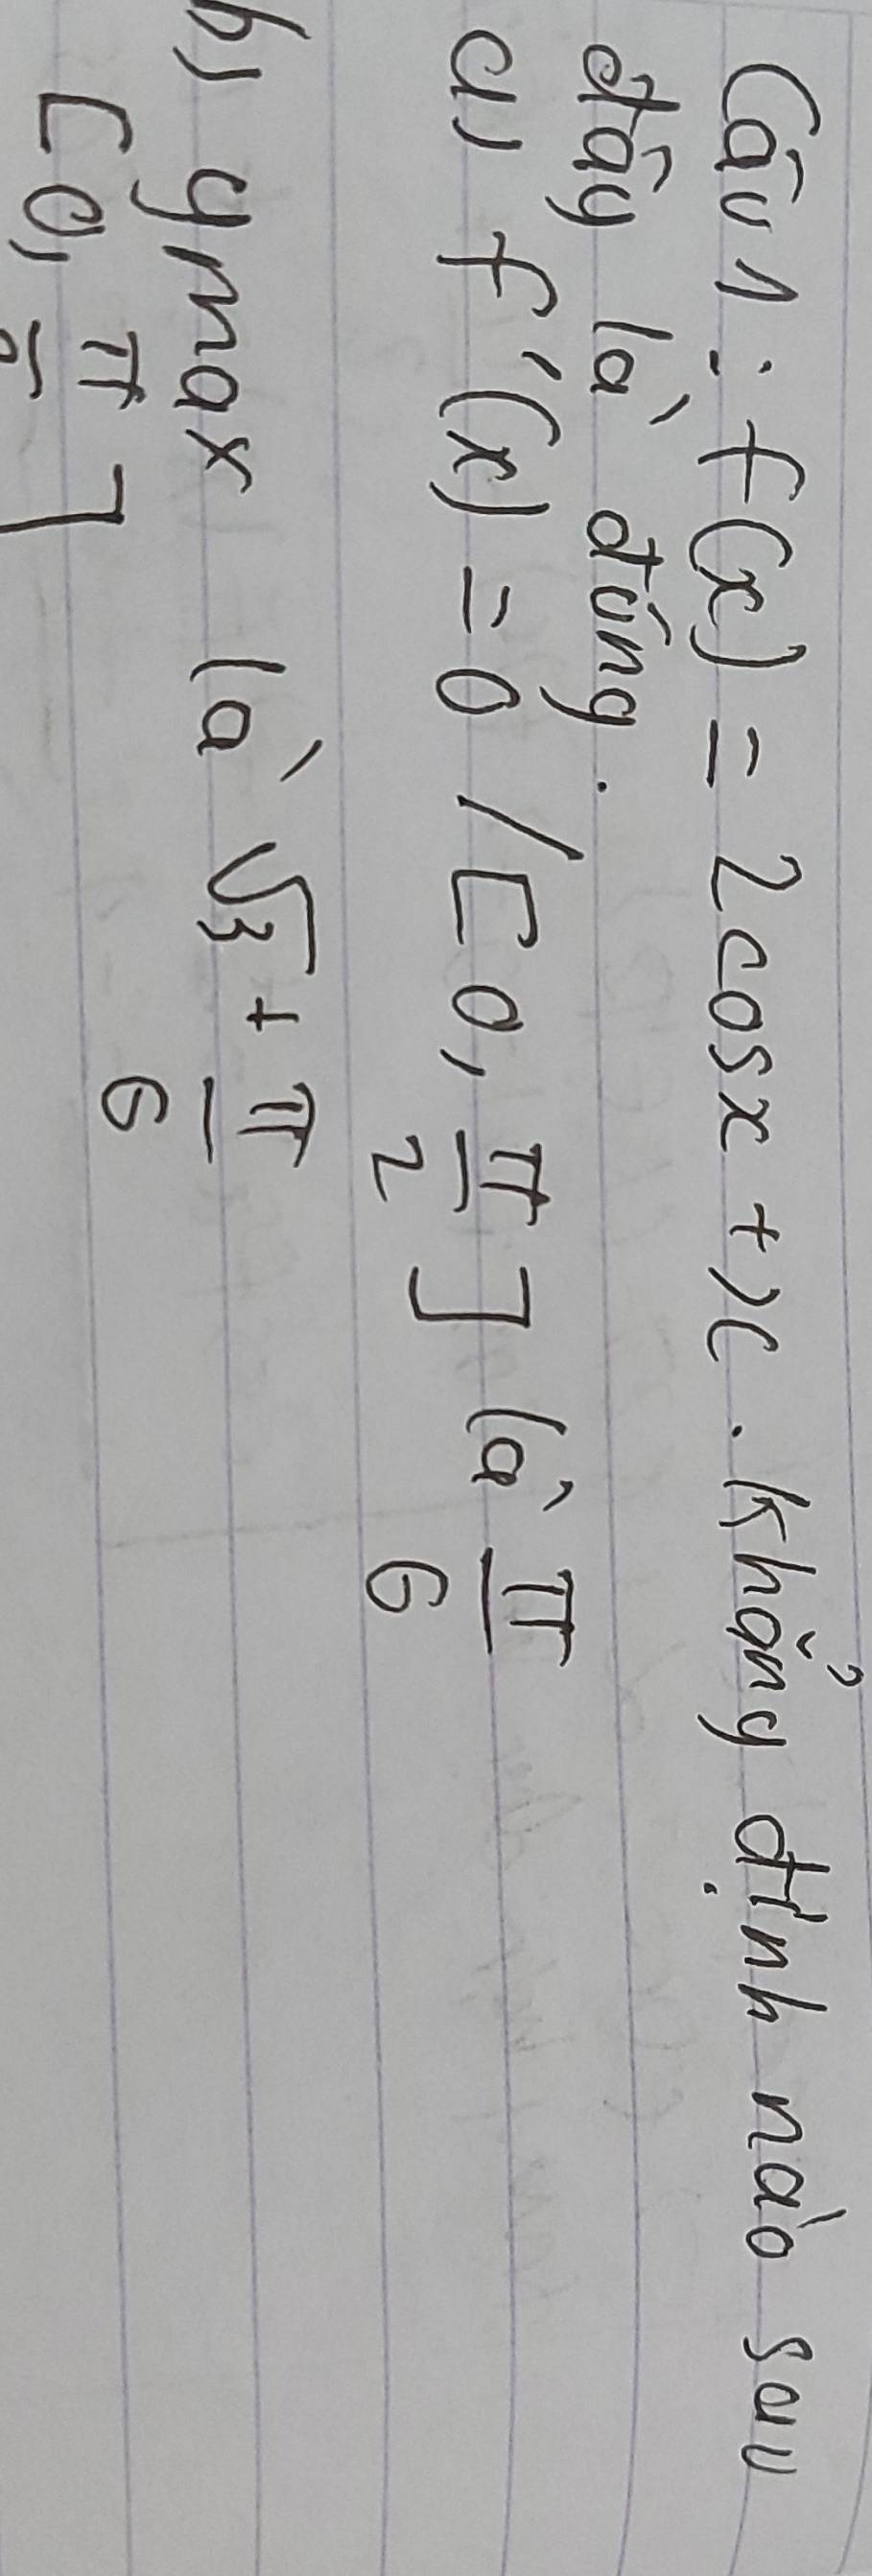 Câu 1 : f(x) = 2cosx + x . Khẳng định nào sau
đây là đúng.
a) f'(x) = 0 / [0, π/2] là π/6
b) y max là √3 + π/6
[0, π/2]